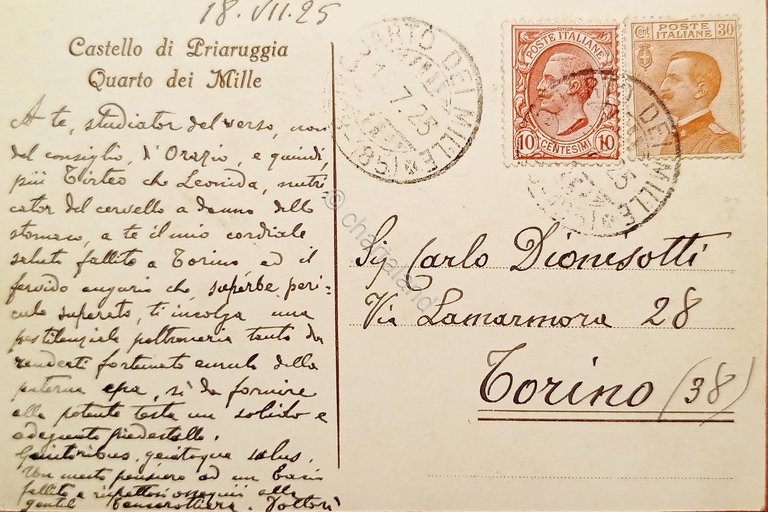 18.VII.25
Castello di Priaruggia
Quarto dei Mille
A te, studiator del verso, non
del consiglio, d'Orazio, e quindi,
più Tirteo che Leonida, nutri
cator del cervello a danno dello
stomaco, a te il mio cordiale
saluto fallito a Torino ed il
fervido augurio che, superbe peri-
culo superato, ti incolga una
pestilenziale poltroneria tanto da
renderti fortunato emulo della
paterna epa, sì da fornire
alla potente testa un solido e
adeguato piedestallo.
Genitoribus, genitoque salus.
Un mesto pensiero ad un bacio
fallito e rispettosi ossequi alla
gentil
QUARTO DEI MILLE
7.25
POSTE ITALIANE
10 CENTESIMI 10
Cent POSTE 30
ITALIANE
DEI MILLE
© chagaland
Sig Carlo Dionisotti
Via Lamarmora 28
Torino (38)